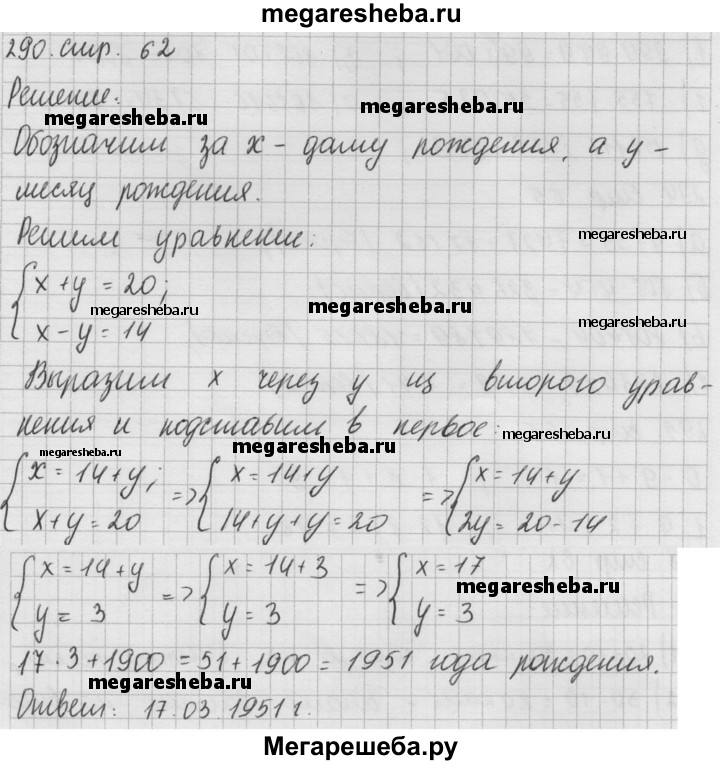 megaresheba.ru
290. стр. 62
Решение:
megaresheba.ru
Обозначим за x - дату рождения, а y -
месяц рождения.
Решим уравнение:
megaresheba.ru
{ x + y = 20;
x - y = 14
megaresheba.ru
megaresheba.ru
megaresheba.ru
Выразим x через y из второго урав-
нения и подставим в первое:
megaresheba.ru
megaresheba.ru
megaresheba.ru
{ x = 14 + y; => { x = 14 + y => { x = 14 + y
x + y = 20 14 + y + y = 20 2y = 20 - 14
{ x = 14 + y => { x = 14 + 3 => { x = 17
y = 3 y = 3 y = 3
megaresheba.ru
17 · 3 + 1900 = 51 + 1900 = 1951 года рождения.
megaresheba.ru
Ответ: 17.03.1951 г.
Мегарешеба.ру